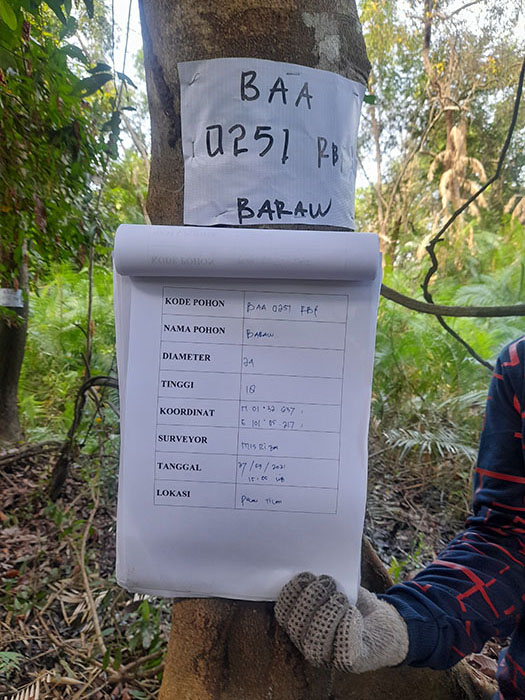 BAA
0251 RBP
BARAW
KODE POHON BAA 0251 RBP
NAMA POHON BARAW
DIAMETER 24
TINGGI 18
KOORDINAT N 01° 32' 637,
E 101° 05' 217,
SURVEYOR
TANGGAL 27/09/2021
15:00 WIB
LOKASI